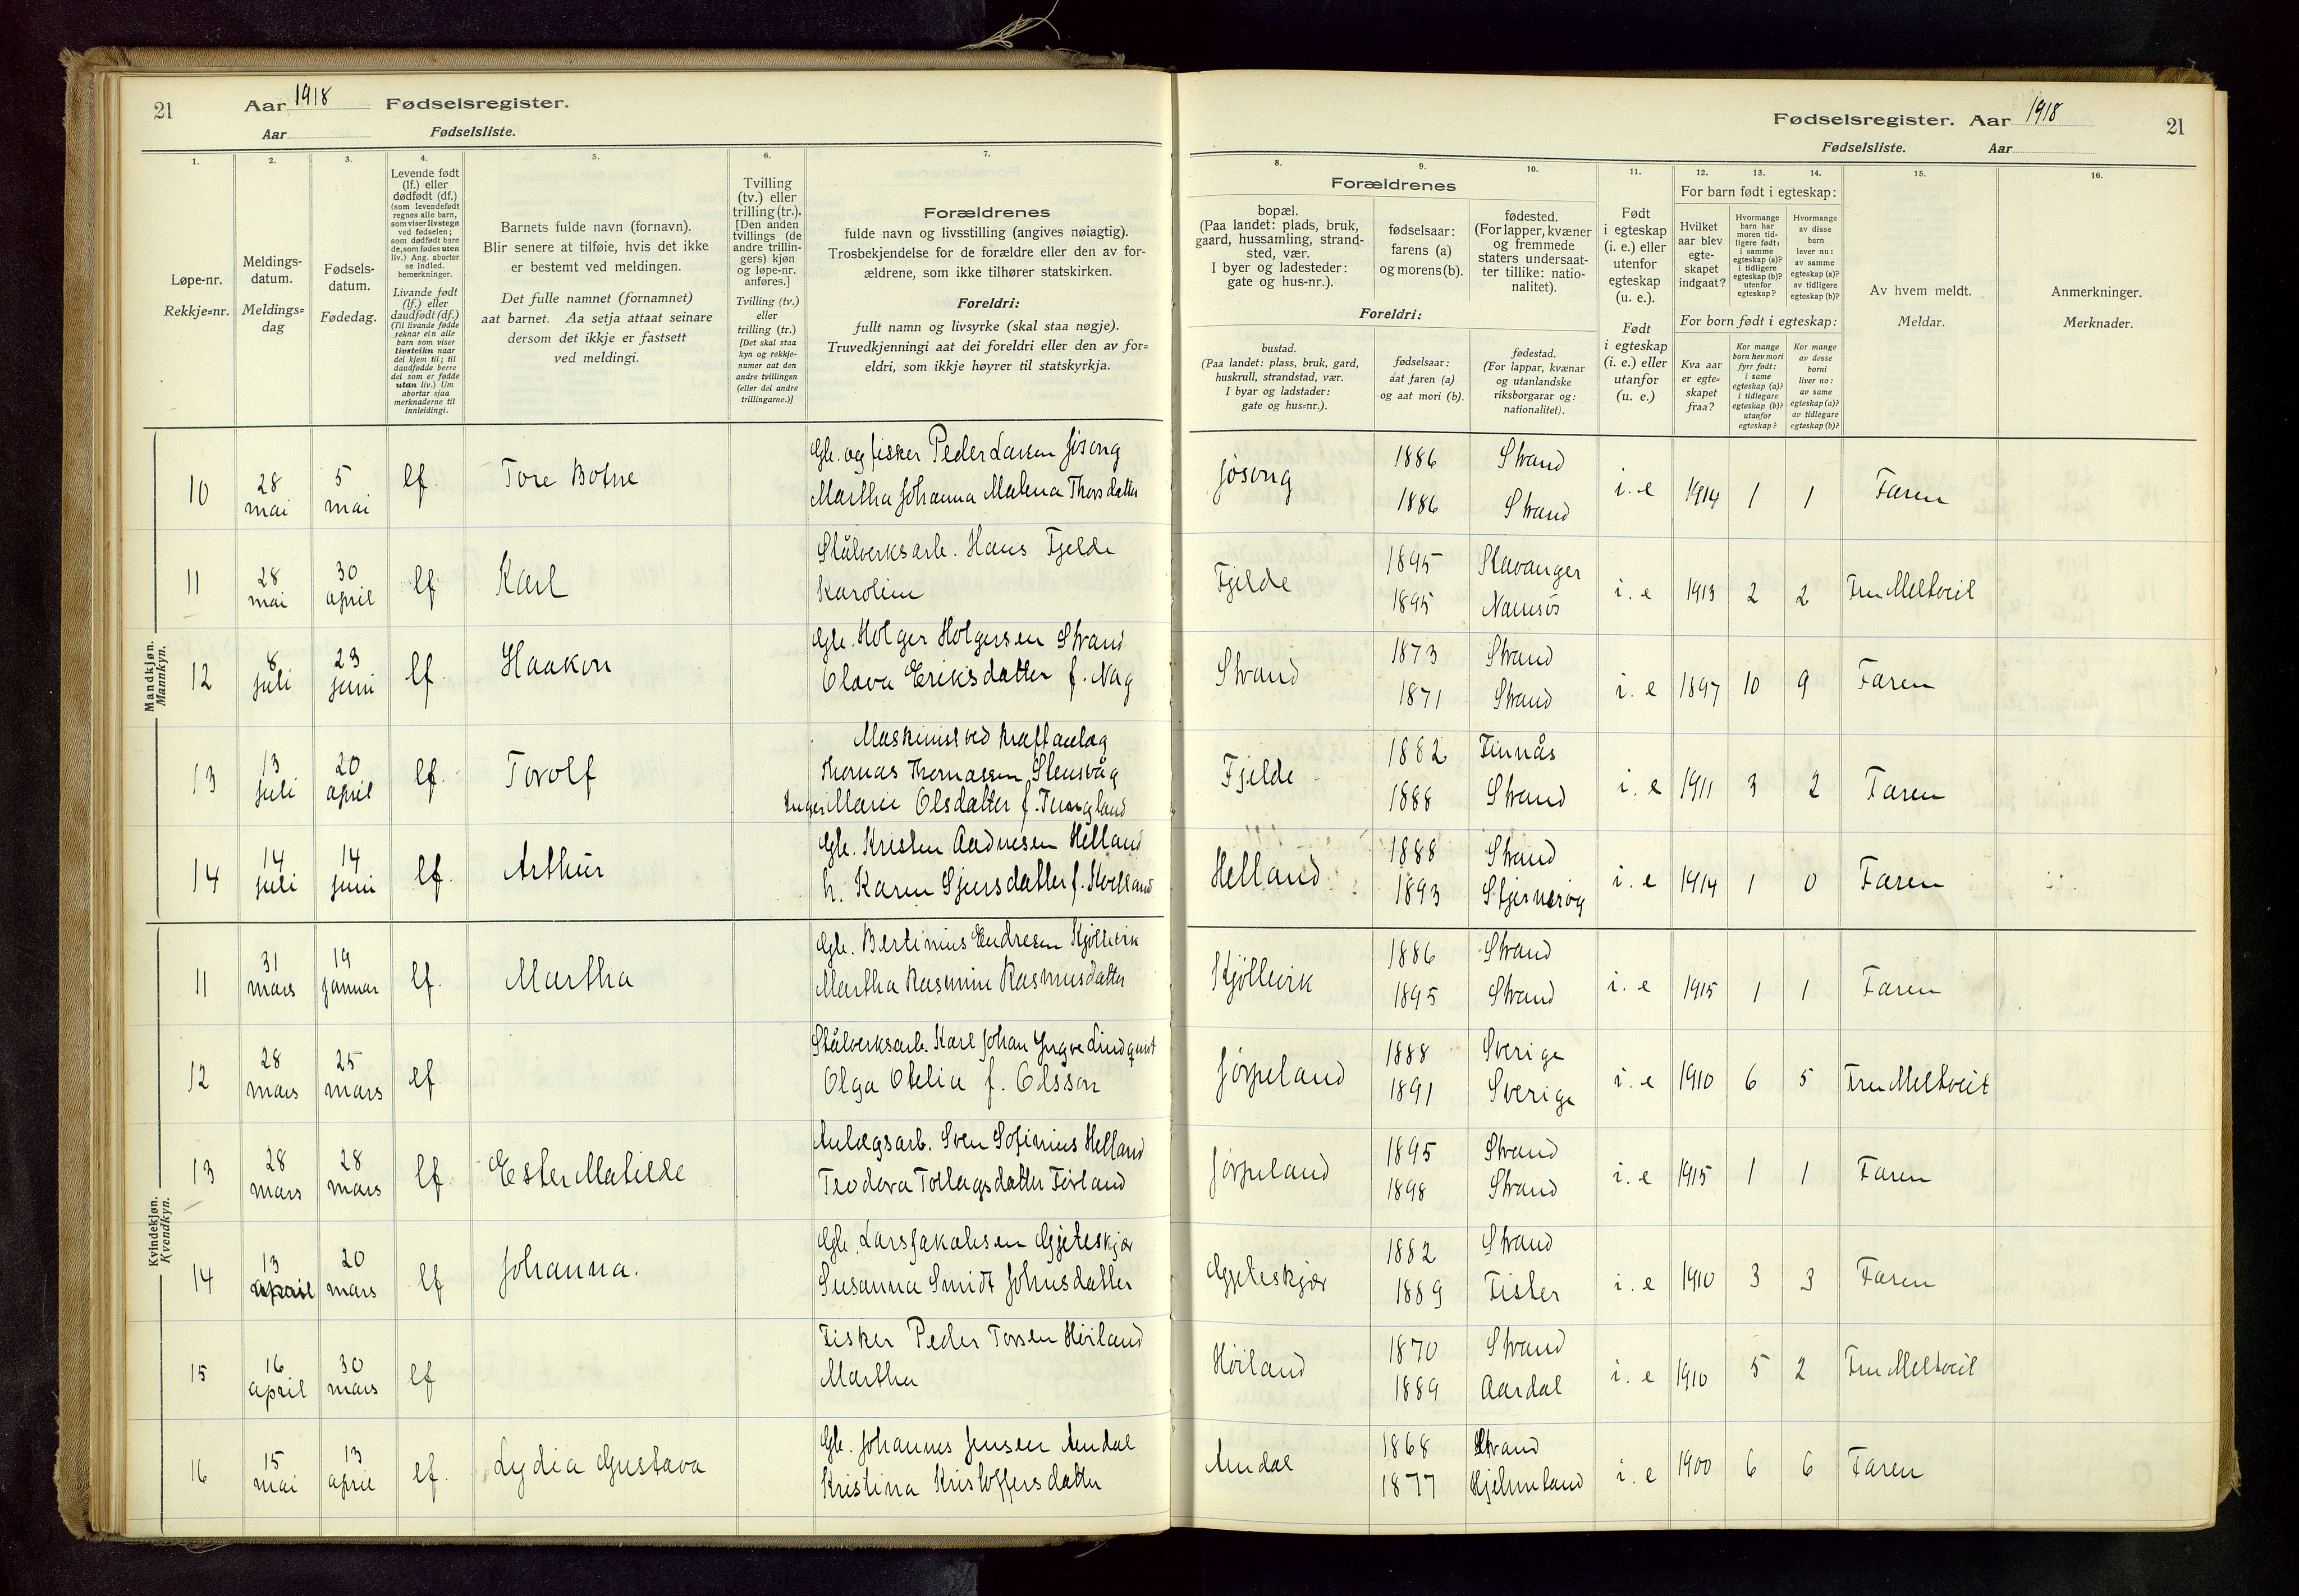 21 Aar 1918 Fødselsregister.
Aar Fødselsliste.
1. 2. 3. 4. 5. 6. 7.
Løpe-nr.
Rekkje=nr.
Meldings-
datum.
Meldings=
dag
Fødsels-
datum.
Fødedag.
Levende født
(lf.) eller
dødfødt (df.)
(som levendefødt
regnes alle barn,
som viser livstegn
ved fødselen;
som dødfødt bare
de, som fødes uten
liv.) Ang. aborter
se indled.
bemerkninger.
Livande født
(lf.) eller
daudfødt (df.)
(Til livande fødde
reknar ein alle
barn som viser
livsteikn naar
dei kjem til; til
daudfødde berre
dei som er fødde
utan liv.) Um
abortar sjaa
merknaderne til
innleidingi.
Barnets fulde navn (fornavn).
Blir senere at tilføie, hvis det ikke
er bestemt ved meldingen.
Det fulle namnet (fornamnet)
aat barnet. Aa setja attaat seinare
dersom det ikkje er fastsett
ved meldingi.
Tvilling
(tv.) eller
trilling (tr.).
[Den anden
tvillings (de
andre trillin-
gers) kjøn
og løpe-nr.
anføres.]
Tvilling (tv.)
eller
trilling (tr.)
[Det skal staa
kyn og rekkje-
numer aat den
andre tvillingen
(eller dei andre
trillingarne.)]
Forældrenes
fulde navn og livsstilling (angives nøiagtig).
Trosbekjendelse for de forældre eller den av for-
ældrene, som ikke tilhører statskirken.
Foreldri:
fullt namn og livsyrke (skal staa nøgje).
Truvedkjenningi aat dei foreldri eller den av for=
eldri, som ikkje høyrer til statskyrkja.
Mandkjøn.
Mannkyn.
10 28 mai 5 mai lf. Tore Botne Gb. og fisker Peder Larsen Jøsong
Martha Johanna Malena Thorsdatter
11 28 mai 30 april lf Karl Stålverksarb. Hans Fjelde
Karoline
12 8 juli 23 juni lf. Haakon Gb. Holger Holgersen Strand
Olava Eriksdatter f. Nag
13 13 juli 20 april lf. Torolf Maskinist ved kraftanlæg
Thomas Thomassen Stensvåg
Inger Marie Olsdatter f. Tungland
14 14 juli 14 juni lf. Arthur Gb. Kristen Aadnesen Helland
h. Karen Sjursdatter f. Hvelland
Kvindekjøn.
Kvendkyn.
11 31 mars 19 januar lf. Martha Gb. Bertinius Endresen Kjøllevik
Martha Rasmine Rasmusdatter
12 28 mars 25 mars lf. Stålverksarb. Karl Johan Yngve Lindqvist
Olga Otelia f. Olsson
13 28 mars 28 mars lf. Ester Matilde Anlægsarb. Sven Sofinius Helland
Teodora Tollagsdatter Førland
14 13 april 20 mars lf Johanna. Gb. Lars Jakobsen Gjiteskjær
Susanna Smidt Johnsdatter
15 16 april 30 mars lf Fisker Peder Torsen Høiland
Martha
16 15 mai 13 april lf. Lydia Gustava Gb. Johannes Jensen Amdal
Kristina Kristoffersdatter
Fødselsregister. Aar 1918 21
Fødselsliste. Aar
8. 9. 10. 11. 12. 13. 14. 15. 16.
Forældrenes
bopæl.
(Paa landet: plads, bruk,
gaard, hussamling, strand-
sted, vær.
I byer og ladesteder:
gate og hus-nr.).
fødselsaar:
farens (a)
og morens (b).
fødested.
(For lapper, kvæner
og fremmede
staters undersaat-
ter tillike: natio-
nalitet).
Foreldri:
bustad.
(Paa landet: plass, bruk, gard,
huskrull, strandstad, vær.
I byar og ladstader:
gate og hus=nr.).
fødselsaar:
aat faren (a)
og aat mori (b).
fødestad.
(For lappar, kvænar
og utanlandske
riksborgarar og:
nationalitet).
Født
i egteskap
(i. e.) eller
utenfor
egteskap
(u. e.).
Født
i egteskap
(i. e.) eller
utanfor
(u. e.)
For barn født i egteskap:
Hvilket
aar blev
egte-
skapet
indgaat?
Hvormange
barn har
moren tid-
ligere født:
i samme
egteskap (a)?
i tidligere
egteskap (b)?
utenfor
egteskap?
Hvormange
av disse
barn
lever nu:
av samme
egteskap (a)?
av tidligere
egteskap (b)?
For born født i egteskap:
Kva aar
er egte=
skapet
fraa?
Kor mange
born hev mori
fyrr født:
i same
egteskap (a)?
i tidlegare
egteskap (b)?
utanfor
egteskap?
Kor mange
av desse
borni
liver no:
av same
egteskap (a)?
av tidlegare
egteskap (b)?
Av hvem meldt.
Meldar.
Anmerkninger.
Merknader.
Jøsong 1886 Strand i. e 1914 1 1 Faren
1886 Strand
Fjelde 1895 Stavanger i. e 1913 2 2 Fru Meltveit
1895 Namsos
Strand 1873 Strand i. e 1897 10 9 Faren
1871 Strand
Fjelde 1882 Finnås i. e 1911 3 2 Faren
1888 Strand
Helland 1888 Strand i. e 1914 1 0 Faren
1893 Stjernerøy
Kjøllevik 1886 Strand i. e 1915 1 1 Faren
1895 Strand
Jørpeland 1888 Sverige i. e 1910 6 5 Fru Meltveit
1891 Sverige
Jørpeland 1895 Strand i. e 1915 1 1 Faren
1898 Strand
Gjiteskjær 1882 Strand i. e 1910 3 3 Faren
1889 Fister
Høiland 1870 Strand i. e 1910 5 2 Fru Meltveit
1889 Aardal
Amdal 1868 Strand i. e 1900 6 6 Faren
1877 Hjelmeland